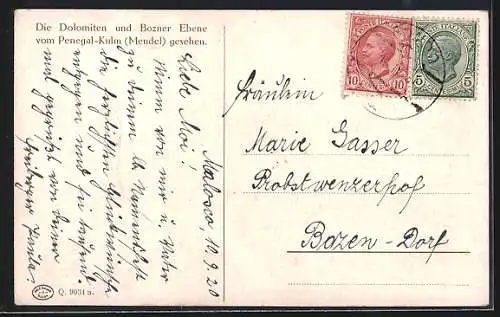 Die Dolomiten und Bozner Ebene
vom Penegal-Kulm (Mendel) gesehen.
Malosco, 10.9.20
Liebe Moi!
Nimm von mir u. Vater
zu deinem lb. Namensfest
die herzlichsten Glückwünsche
entgegen und sei tausend
mal gegrüßt von deiner
Fräulein
Marie Gasser
Probstwenzerhof
Bozen-Dorf
POSTE ITALIANE
10 10
POSTE ITALIANE
5 5
Q. 9031 a.